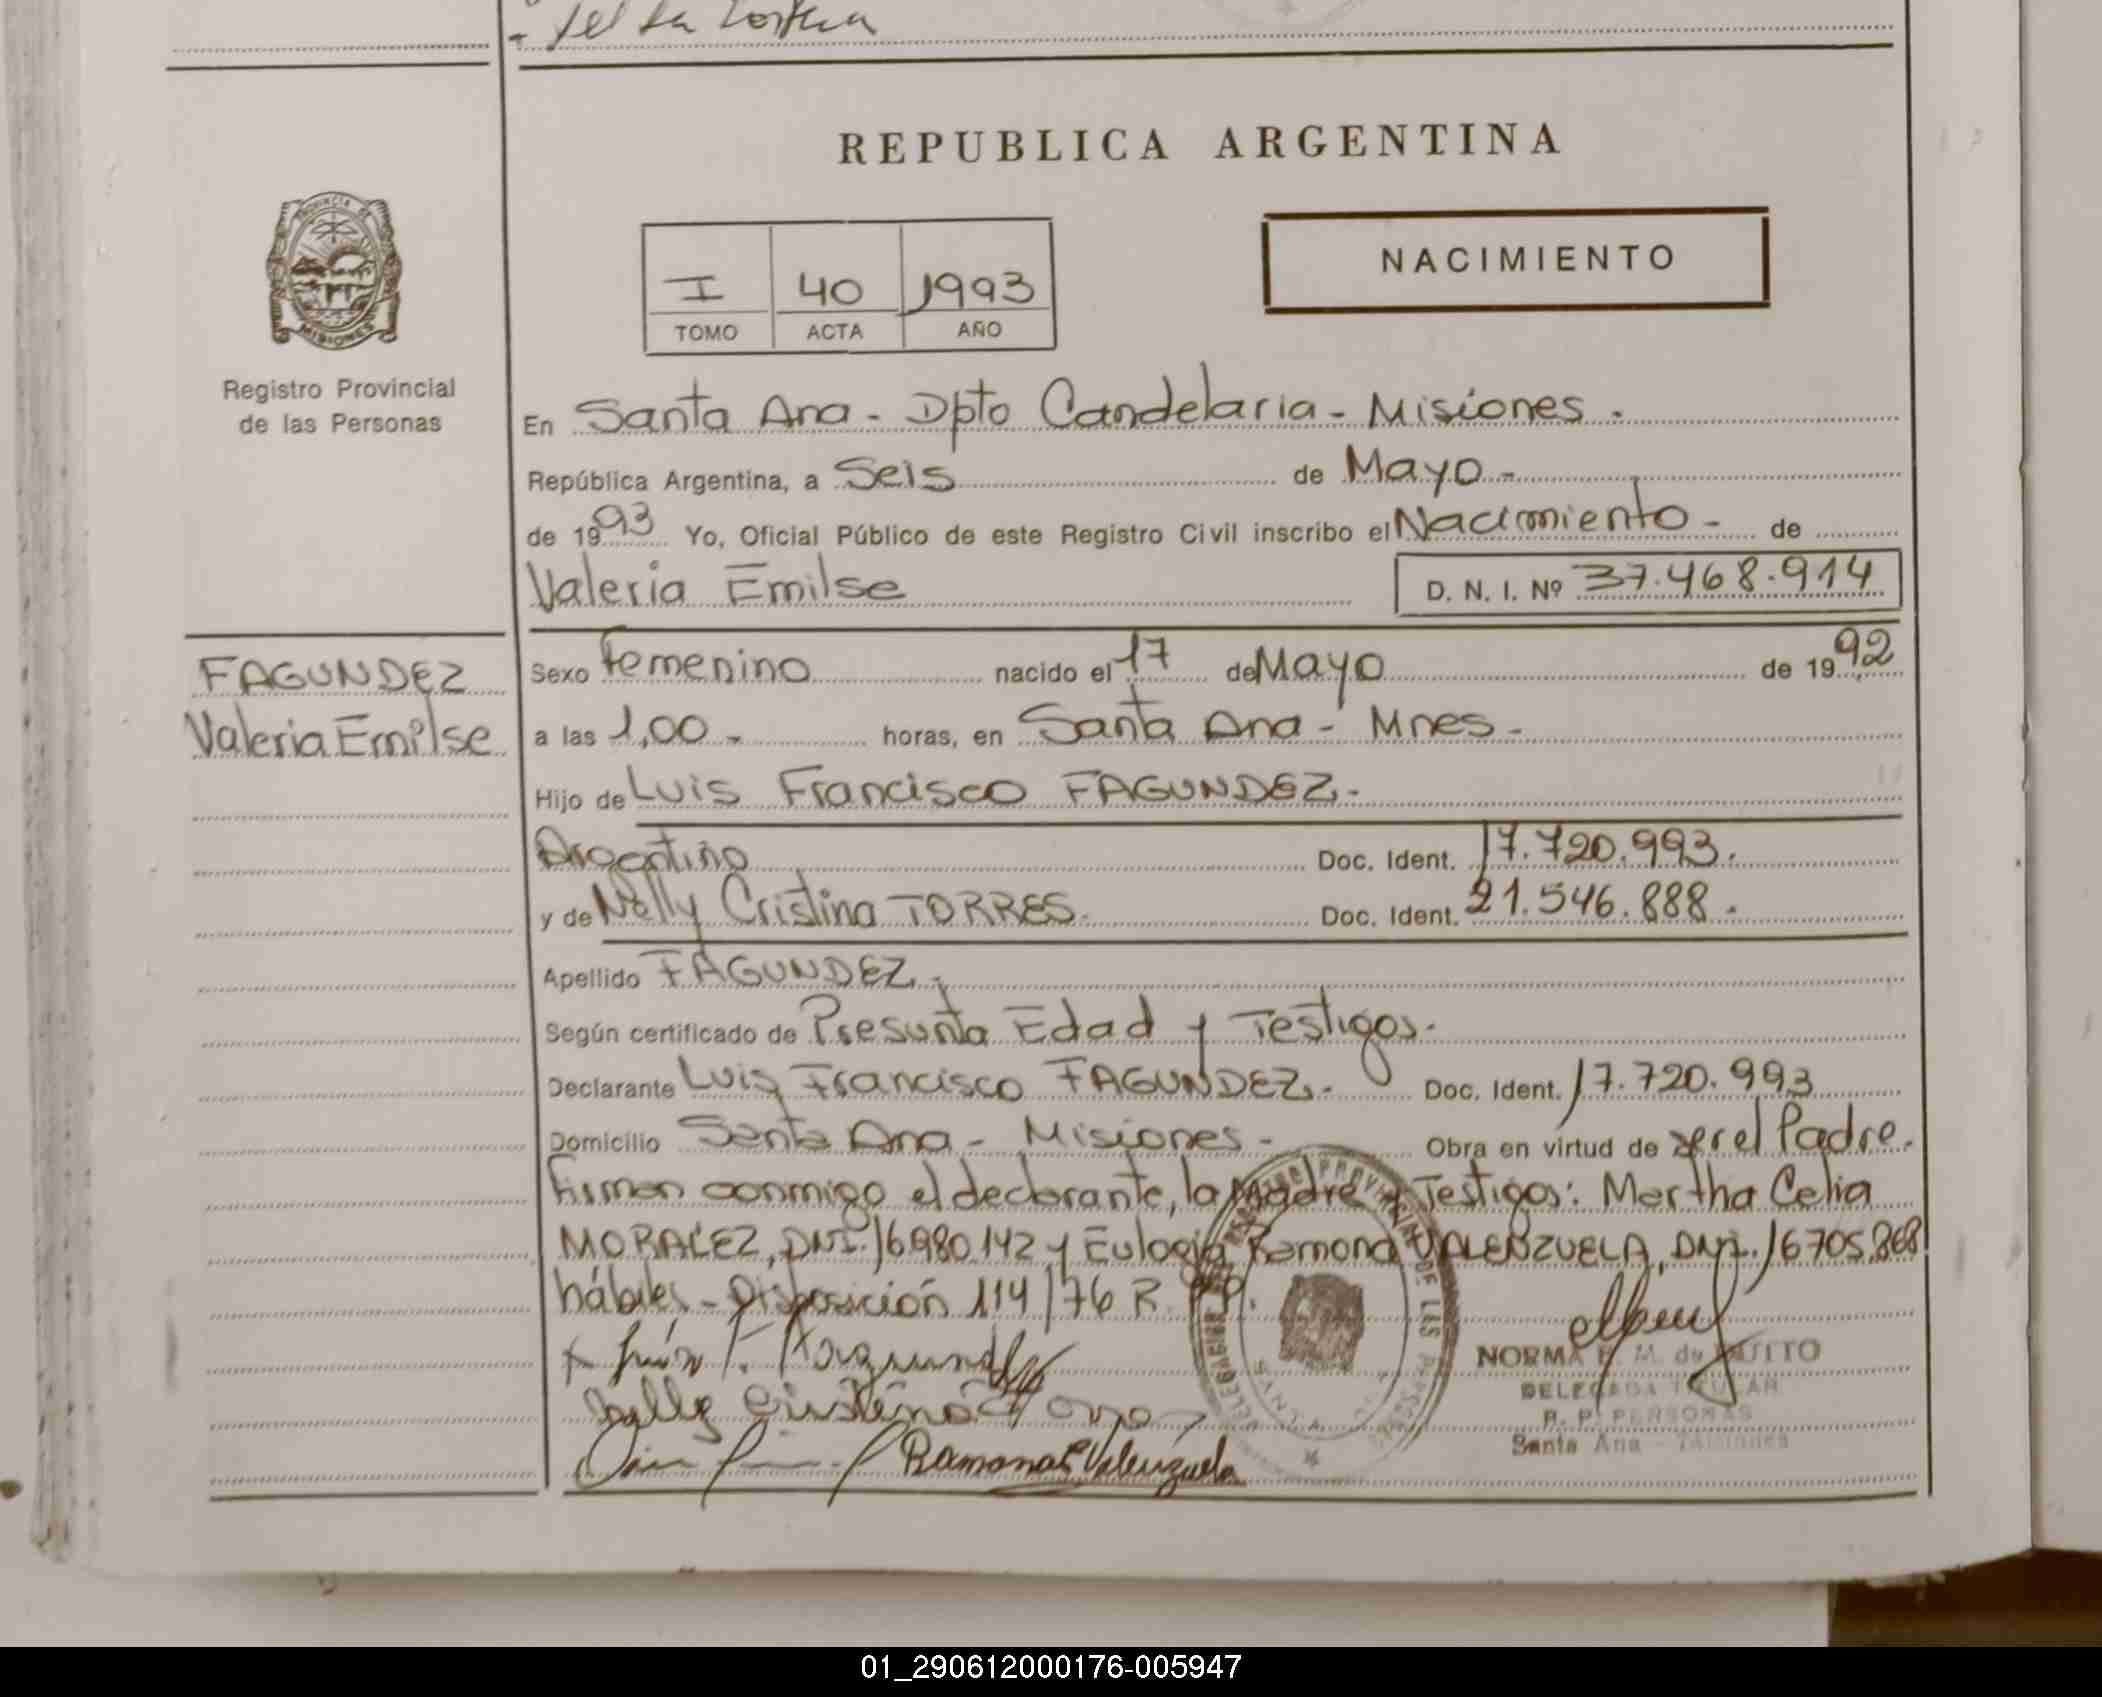 REPUBLICA ARGENTINA
PROVINCIA DE
MISIONES
Registro Provincial
de las Personas
I 40 1993
TOMO ACTA AÑO
NACIMIENTO
En Santa Ana - Dpto Candelaria - Misiones.
República Argentina, a Seis de Mayo-
de 1993 Yo, Oficial Público de este Registro Civil inscribo el Nacimiento - de
Valeria Emilse D. N. I. Nº 37.468.914
FAGUNDEZ
Valeria Emilse
Sexo Femenino nacido el 17 de Mayo de 1992
a las 1,00 - horas, en Santa Ana - Mnes -
Hijo de Luis Francisco FAGUNDEZ.-
Argentino Doc. Ident. 17.720.993.
y de Nelly Cristina TORRES. Doc. Ident. 21.546.888.
Apellido FAGUNDEZ.
Según certificado de Presunta Edad y Testigos.
Declarante Luis Francisco FAGUNDEZ.- Doc. Ident. 17.720.993
Domicilio Santa Ana - Misiones - Obra en virtud de ser el Padre.
Firman conmigo el declarante, la Madre y Testigos: Martha Celia
MORALEZ, DNI. 16980.142 y Eulogia Ramona VALENZUELA, DNI. 16705.868
hábiles - Disposición 114/76 R.P.P.
NORMA M. de
DELEGADA TITULAR
R. P. PERSONAS
Santa Ana - Misiones
Ramona E Valenzuela
01_290612000176-005947